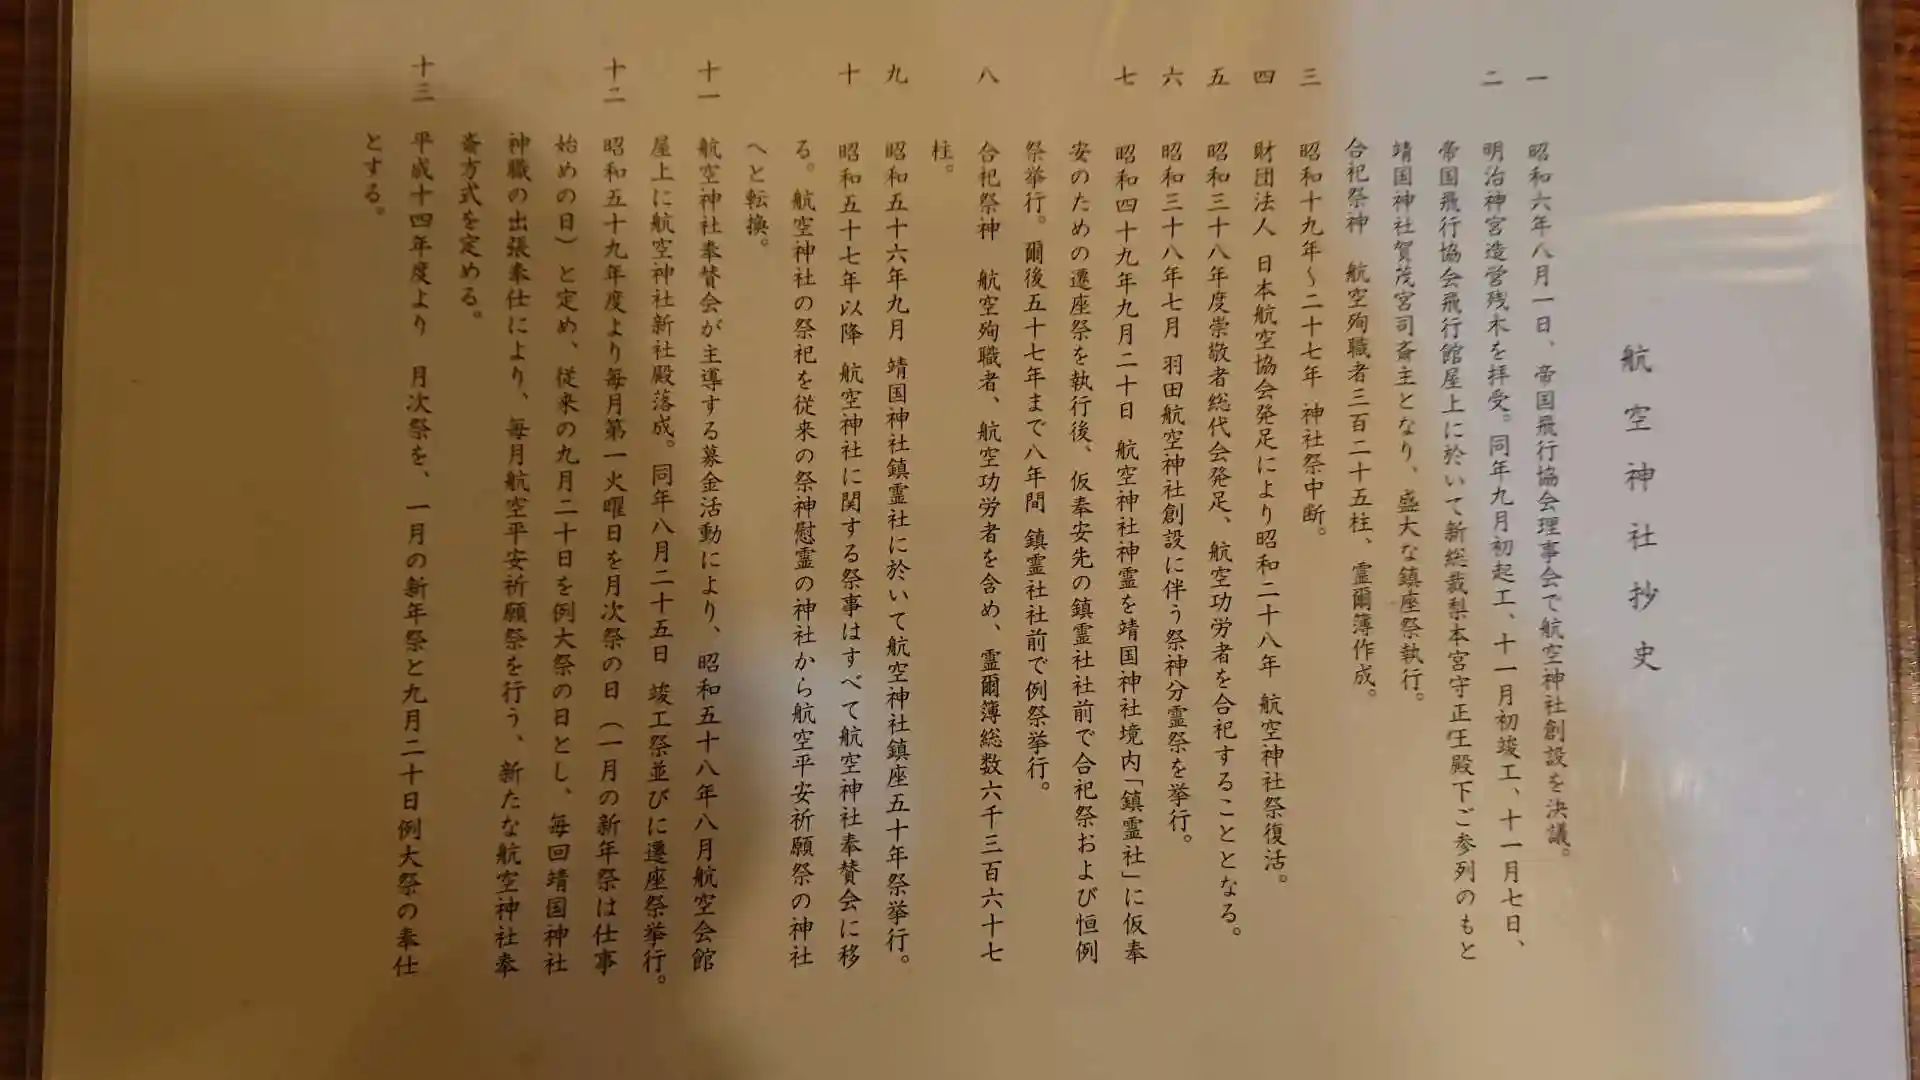 航空神社抄史
一 昭和六年八月一日、帝国飛行協会理事会で航空神社創設を決議。
二 明治神宮造営残木を拝受。同年九月初起工、十一月初竣工、十一月七日、
帝国飛行協会飛行館屋上に於いて新総裁梨本宮守正王殿下ご参列のもと
靖国神社賀茂宮司斎主となり、盛大な鎮座祭執行。
合祀祭神 航空殉職者三百二十五柱、霊爾簿作成。
三 昭和十九年〜二十七年 神社祭中断。
四 財団法人 日本航空協会発足により昭和二十八年 航空神社祭復活。
五 昭和三十八年度崇敬者総代会発足、航空功労者を合祀することとなる。
六 昭和三十八年七月 羽田航空神社創設に伴う祭神分霊祭を挙行。
七 昭和四十九年九月二十日 航空神社神霊を靖国神社境内「鎮霊社」に仮奉
安のための遷座祭を執行後、仮奉安先の鎮霊社社前で合祀祭および恒例
祭挙行。爾後五十七年まで八年間 鎮霊社社前で例祭挙行。
八 合祀祭神 航空殉職者、航空功労者を含め、霊爾簿総数六千三百六十七
柱。
九 昭和五十六年九月 靖国神社鎮霊社に於いて航空神社鎮座五十年祭挙行。
十 昭和五十七年以降 航空神社に関する祭事はすべて航空神社奉賛会に移
る。航空神社の祭祀を従来の祭神慰霊の神社から航空平安祈願祭の神社
へと転換。
十一 航空神社奉賛会が主導する募金活動により、昭和五十八年八月航空会館
屋上に航空神社新社殿落成。同年八月二十五日 竣工祭並びに遷座祭挙行。
十二 昭和五十九年度より毎月第一火曜日を月次祭の日（一月の新年祭は仕事
始めの日）と定め、従来の九月二十日を例大祭の日とし、毎回靖国神社
神職の出張奉仕により、毎月航空平安祈願祭を行う、新たな航空神社奉
斎方式を定める。
十三 平成十四年度より 月次祭を、一月の新年祭と九月二十日例大祭の奉仕
とする。